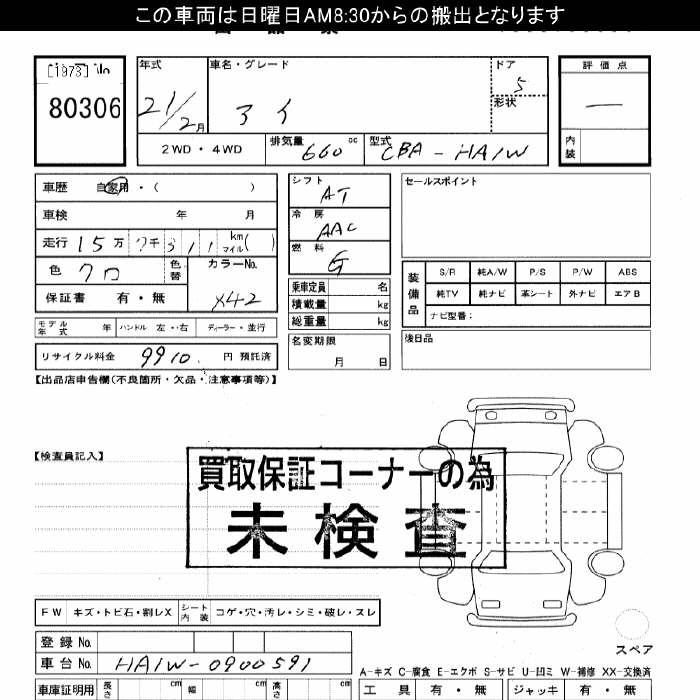 この車両は日曜日AM8:30からの搬出となります
[1973] No
80306
年式
21/2月
車名・グレード
アイ
ドア
5
形状
評価点
―
内装
2WD・4WD
排気量
660 cc
型式
CBA-HA1W
車歴 自家用・( )
車検 年 月
走行 15万 7千311 km マイル( )
色 クロ
色替
カラーNo.
X42
保証書 有・無
モデル年式 年
ハンドル 左・右
ディーラー・並行
リサイクル料金 9910. 円 預託済
シフト
AT
冷房
AAC
燃料
G
乗車定員 名
積載量 kg
総重量 kg
名変期限
月 日
セールスポイント
装備品
S/R 純A/W P/S P/W ABS
純TV 純ナビ 革シート 外ナビ エアB
ナビ型番:
後日品
【出品店申告欄(不良箇所・欠品・注意事項等)】
【検査員記入】
買取保証コーナーの為
未検査
FW キズ・トビ石・割レX シート内装 コゲ・穴・汚レ・シミ・破レ・スレ
登録No.
車台No. HA1W-0900591
スペア
A-キズ C-腐食 E-エクボ S-サビ U-凹ミ W-補修 XX-交換済
車庫証明用 長さ cm 幅 cm 高さ cm
工具 有・無 ジャッキ 有・無